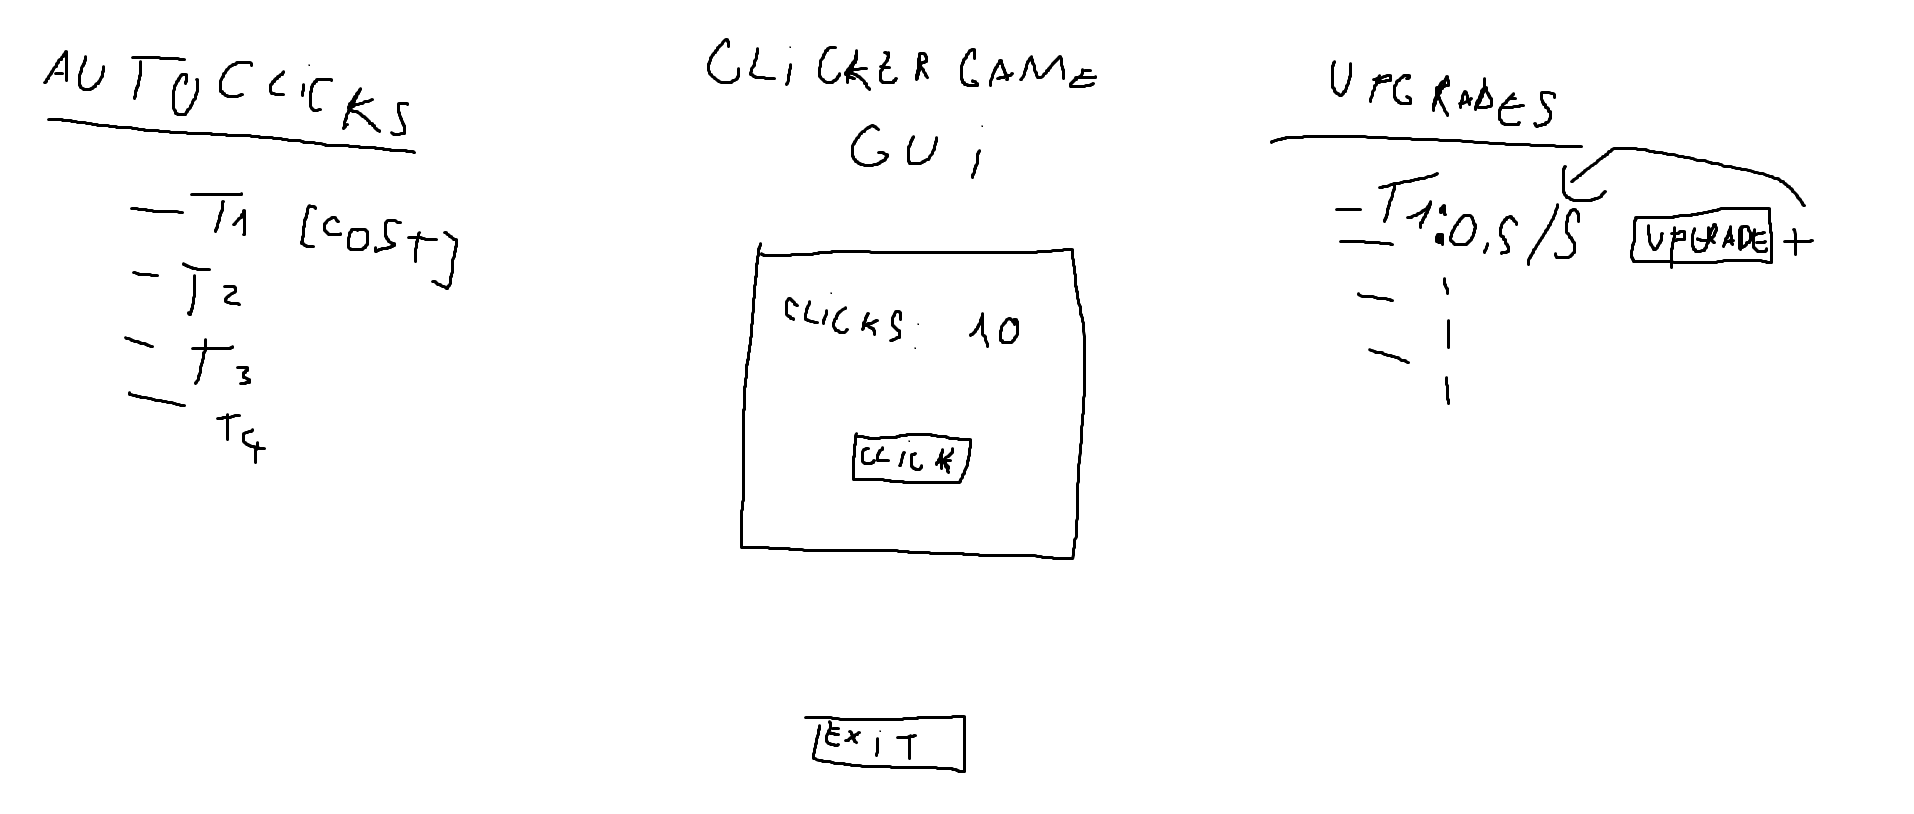 AUTOCLICKS
- T1 [COST]
- T2
- T3
- T4
CLICKER GAME
GUi
CLiCKS: 10
CLICK
EXiT
UPGRADES
- T1: 0,5/S UPGRADE +